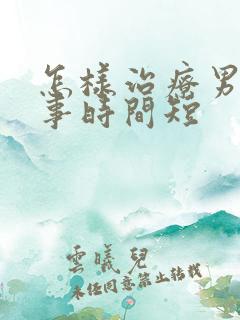 怎樣治療男
事時間短
雲曦兒
未經同意禁止轉載